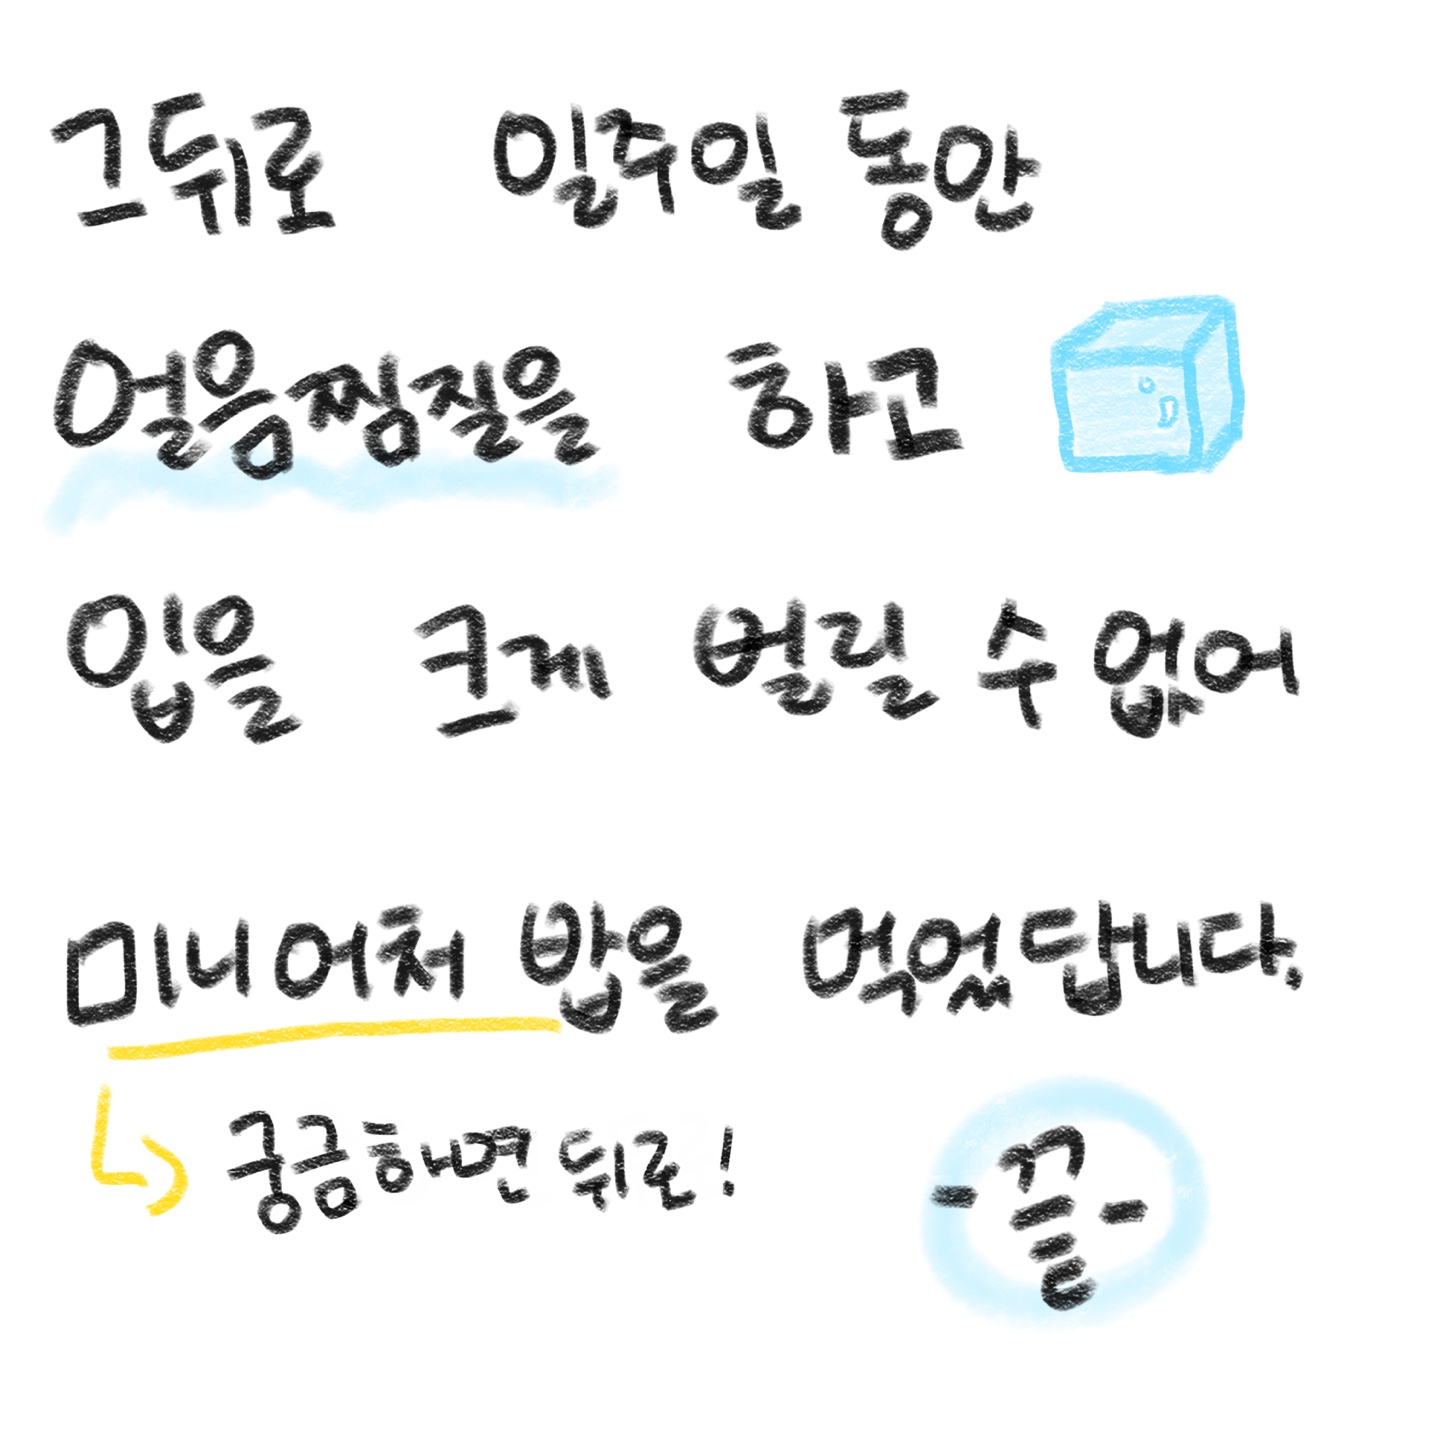 그 뒤로 일주일 동안
얼음찜질을 하고
입을 크게 벌릴 수 없어
미니어처 밥을 먹었답니다.
궁금하면 뒤로!
-끝-